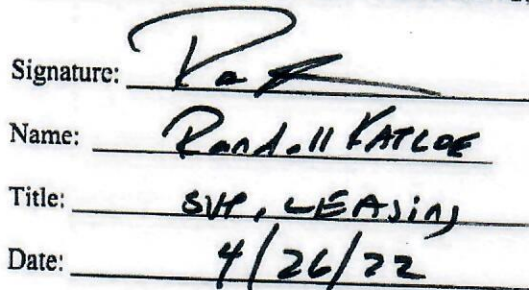 Signature:
Name: Randall
Title: SVP, LEASing
Date: 4/26/22